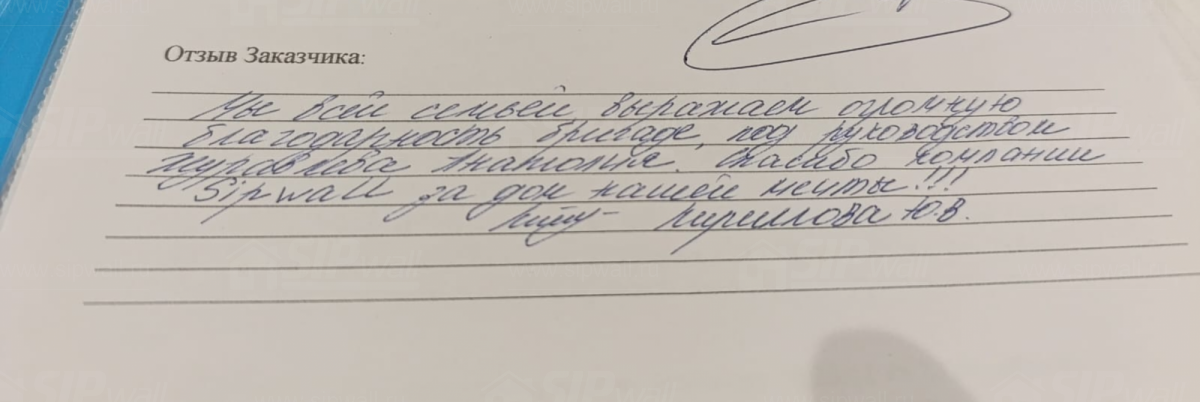 Отзыв Заказчика:
Мы всей семьёй выражаем огромную
благодарность бригаде, под руководством
Журавлёва Анатолия. Спасибо компании
Sipwall за дом нашей мечты!!!
Кириллова Ю.В.